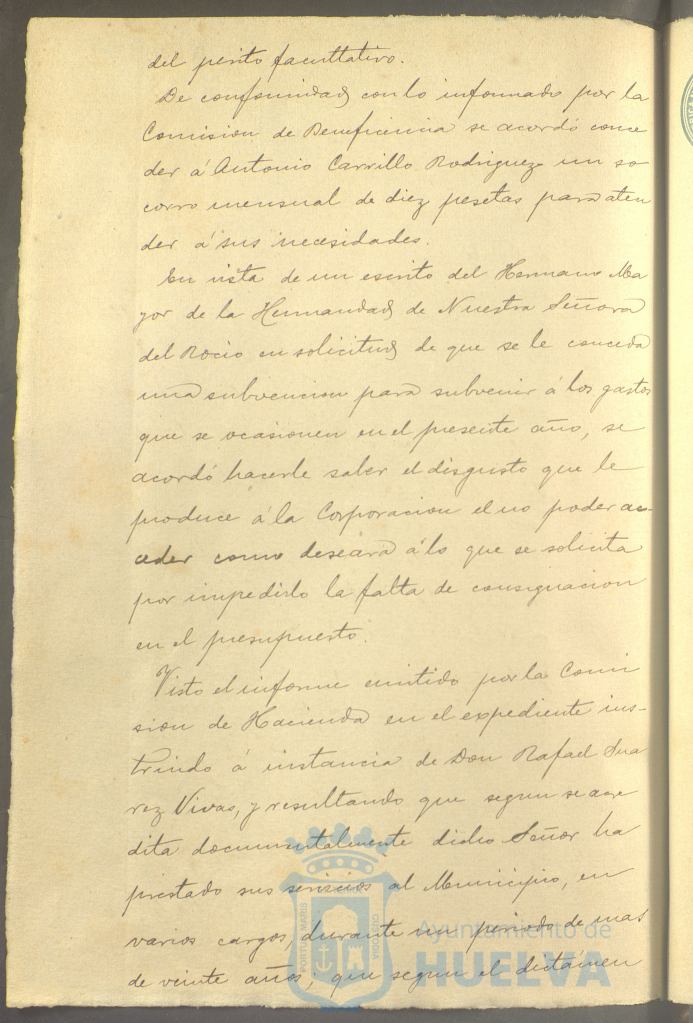 del perito facultativo.
De conformidad con lo informado por la
Comision de Beneficencia se acordó conce
der á Antonio Carrillo Rodriguez un so
corro mensual de diez pesetas para aten
der á sus necesidades.
En vista de un escrito del Hermano Ma
yor de la Hermandad de Nuestra Señora
del Rocio en solicitud de que se le conceda
una subvencion para subvenir á los gastos
que se ocasionen en el presente año, se
acordó hacerle saber el disgusto que le
produce á la Corporacion el no poder ac-
ceder como deseara á lo que se solicita
por impedirlo la falta de consignacion
en el presupuesto.
Visto el informe emitido por la Comi
sion de Hacienda en el expediente ins-
truido á instancia de Don Rafael Sua
rez Vivas, y resultando que segun se acre
dita documentalmente dicho Señor ha
prestado sus servicios al Municipio, en
varios cargos, durante un periodo de mas
de veinte años; que segun el dictámen
PORTUS MARIS
CUSTODIA
Ayuntamiento de
HUELVA